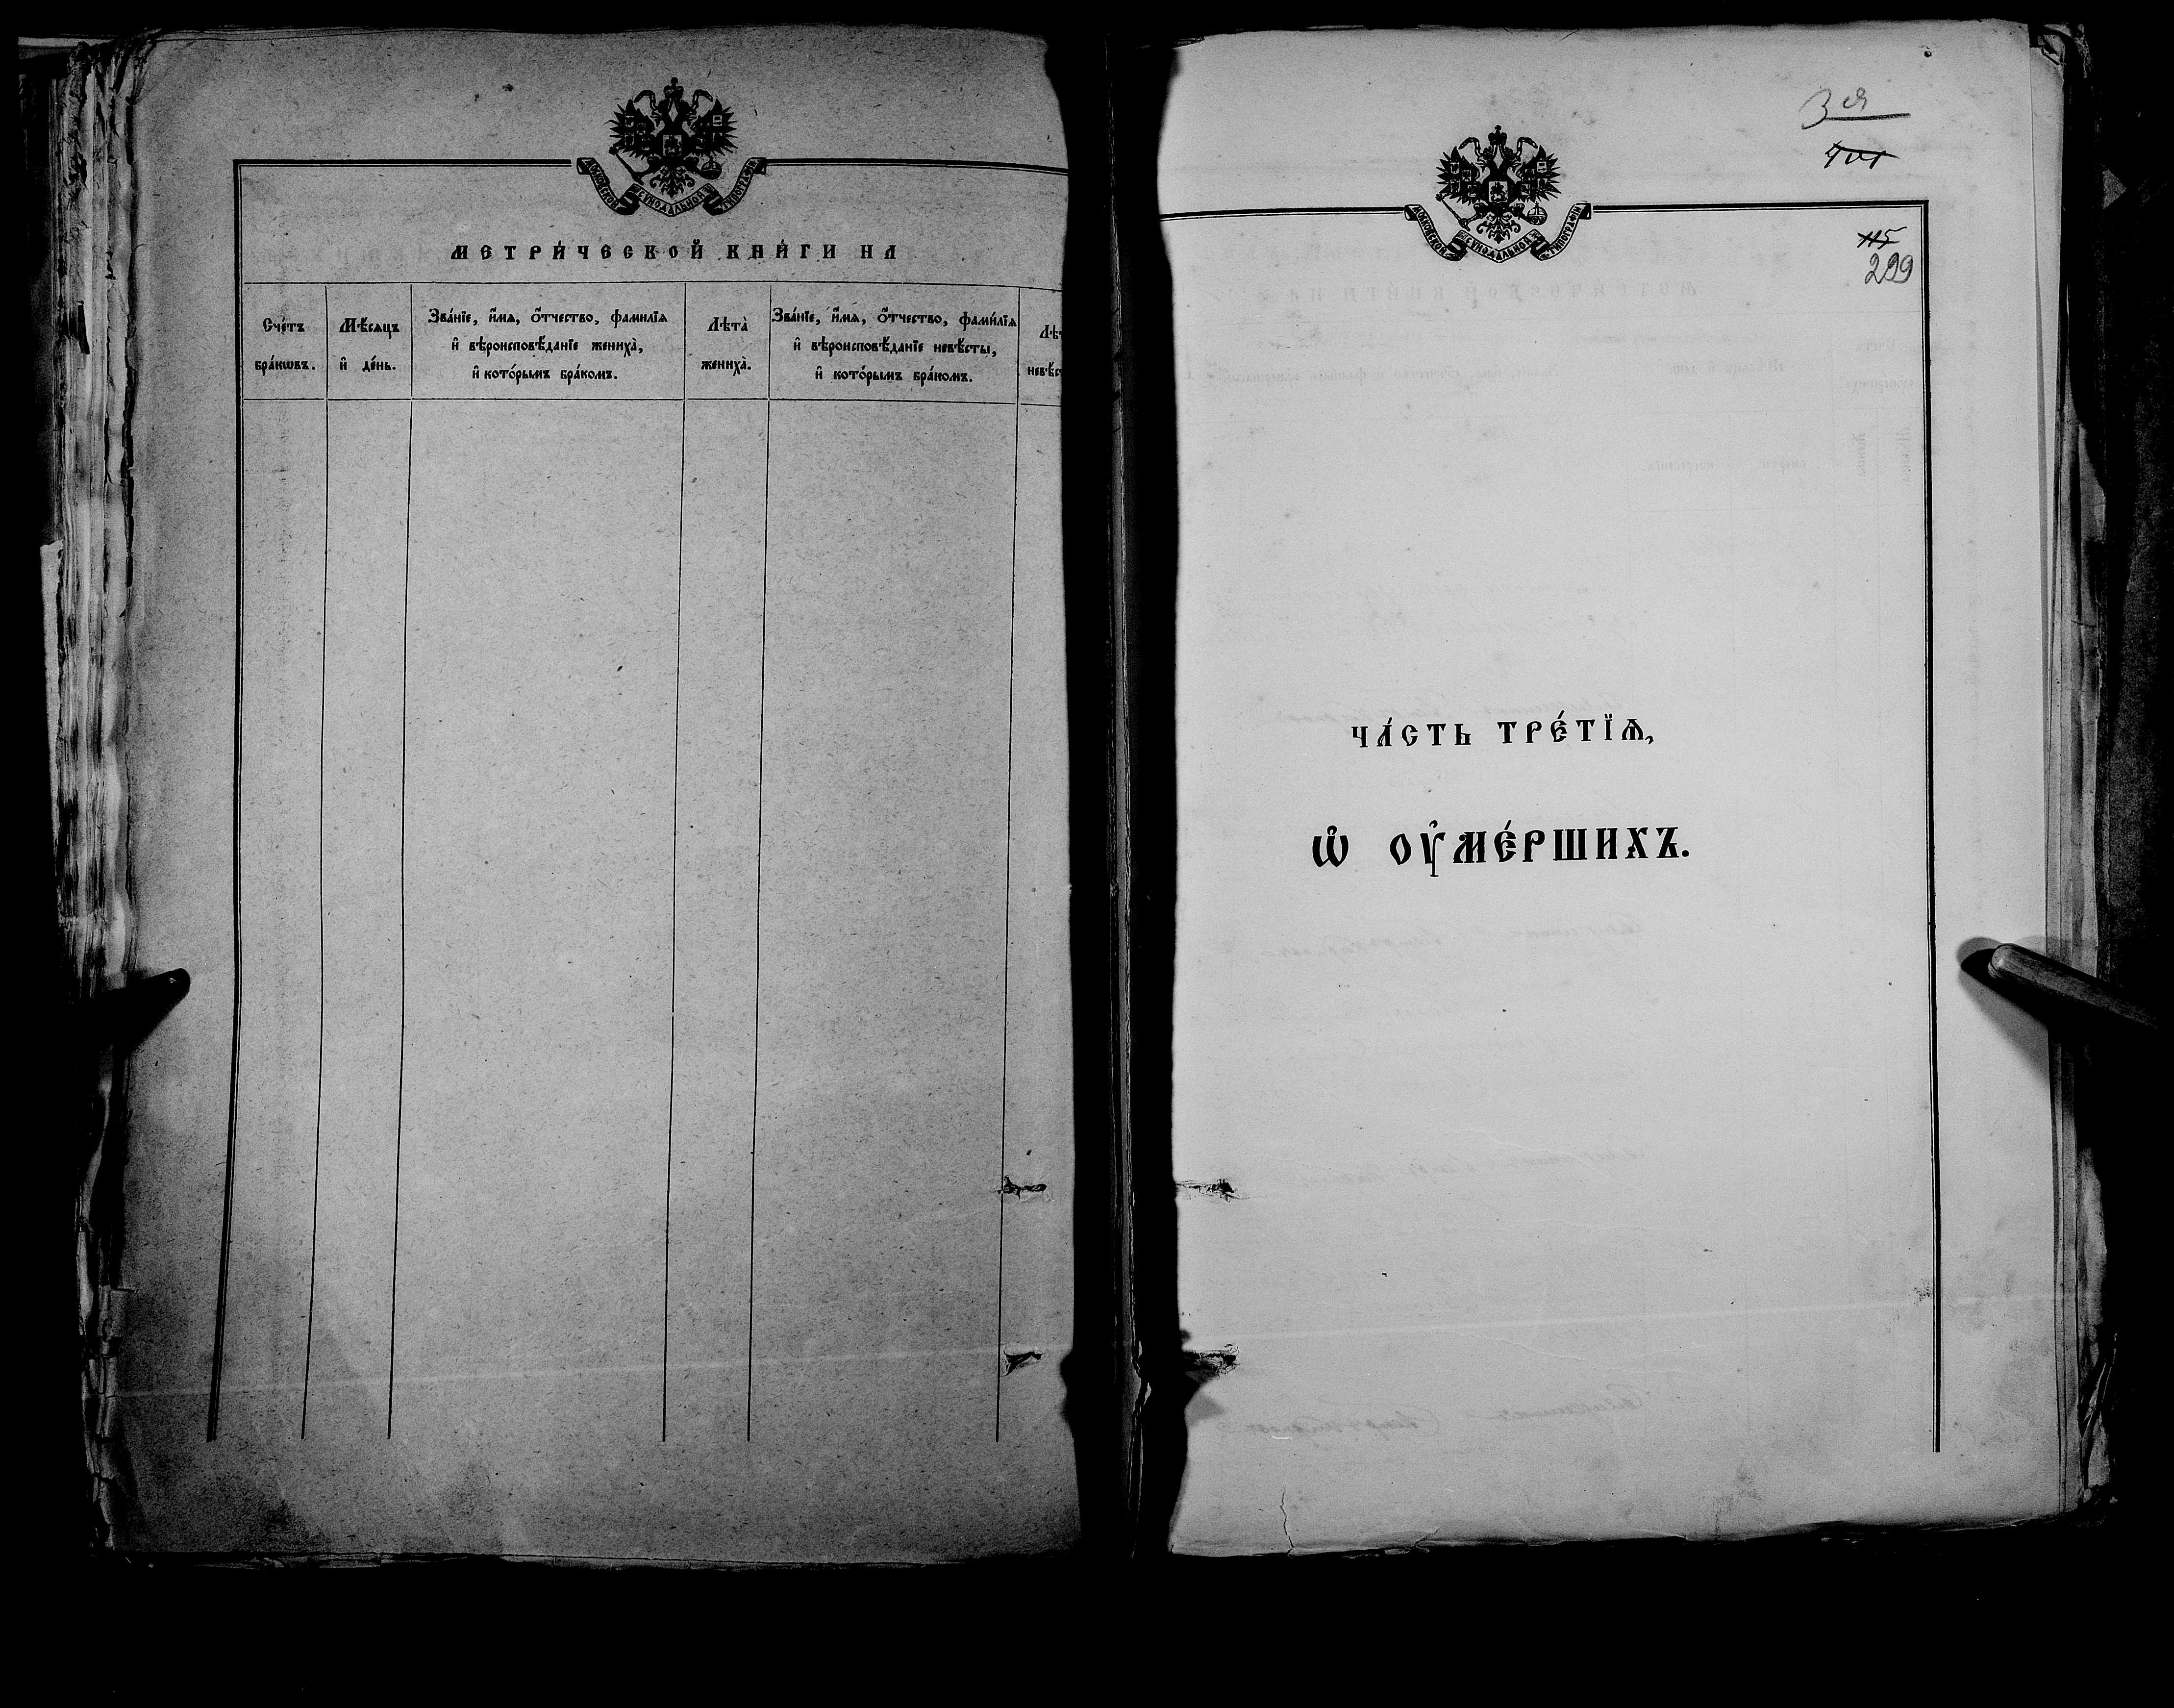 МОСКОВСКОЙ СУНОДАЛЬНОЙ ТИПОГРАФІИ
МЕТРИ́ЧЕСКОЙ КНИ́ГИ НА
Сче́тъ
бра́кѡвъ.
Мѣ́сяцъ
и҆ де́нь.
Зва́нїе, и҆́мѧ, ѻ҆́тчество, фами́лїѧ
и҆ вѣроисповѣ́данїе жениха̀,
и҆ кото́рымъ бра́комъ.
Лѣта̀
жениха̀.
Зва́нїе, и҆́мѧ, ѻ҆́тчество, фами́лїѧ
и҆ вѣроисповѣ́данїе невѣ́сты,
и҆ кото́рымъ бра́комъ.
Лѣт
невѣ́с
3 я
МОСКОВСКОЙ СУНОДАЛЬНОЙ ТИПОГРАФІИ
115
299
ЧА́СТЬ ТРЕ́ТЇѦ,
Ѡ҆ ОУ҆МЕ́РШИХЪ.